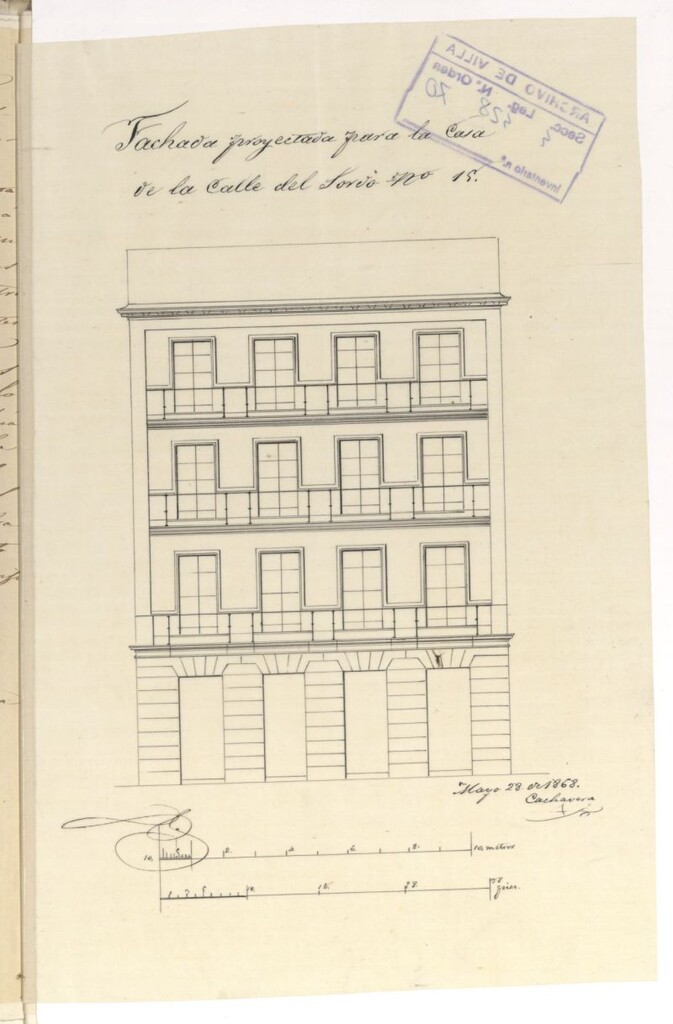 Fachada proyectada para la Casa
de la Calle del Sordo Nº 15.
ARCHIVO DE VILLA
Secc. 3 Leg. 328 N. Orden 70
Inventario n.º
Mayo 28 de 1868.
Cachavera
10 5 2. 4 6 8. 10 metros
10. 15. pies.